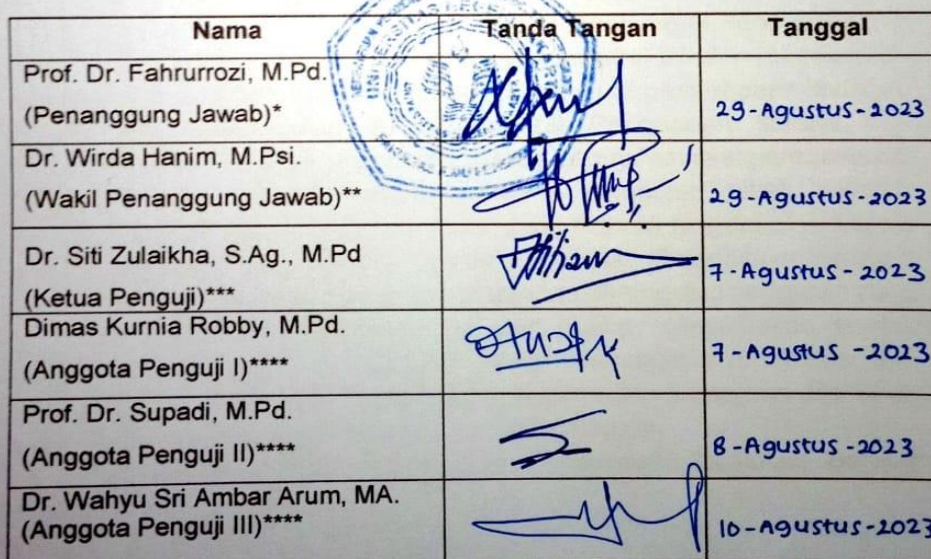 Nama Tanda Tangan Tanggal
Prof. Dr. Fahrurrozi, M.Pd.
(Penanggung Jawab)* 29-Agustus-2023
Dr. Wirda Hanim, M.Psi.
(Wakil Penanggung Jawab)** 29-Agustus-2023
Dr. Siti Zulaikha, S.Ag., M.Pd
(Ketua Penguji)*** 7-Agustus-2023
Dimas Kurnia Robby, M.Pd.
(Anggota Penguji I)**** 7-Agustus-2023
Prof. Dr. Supadi, M.Pd.
(Anggota Penguji II)**** 8-Agustus-2023
Dr. Wahyu Sri Ambar Arum, MA.
(Anggota Penguji III)**** 10-Agustus-2023